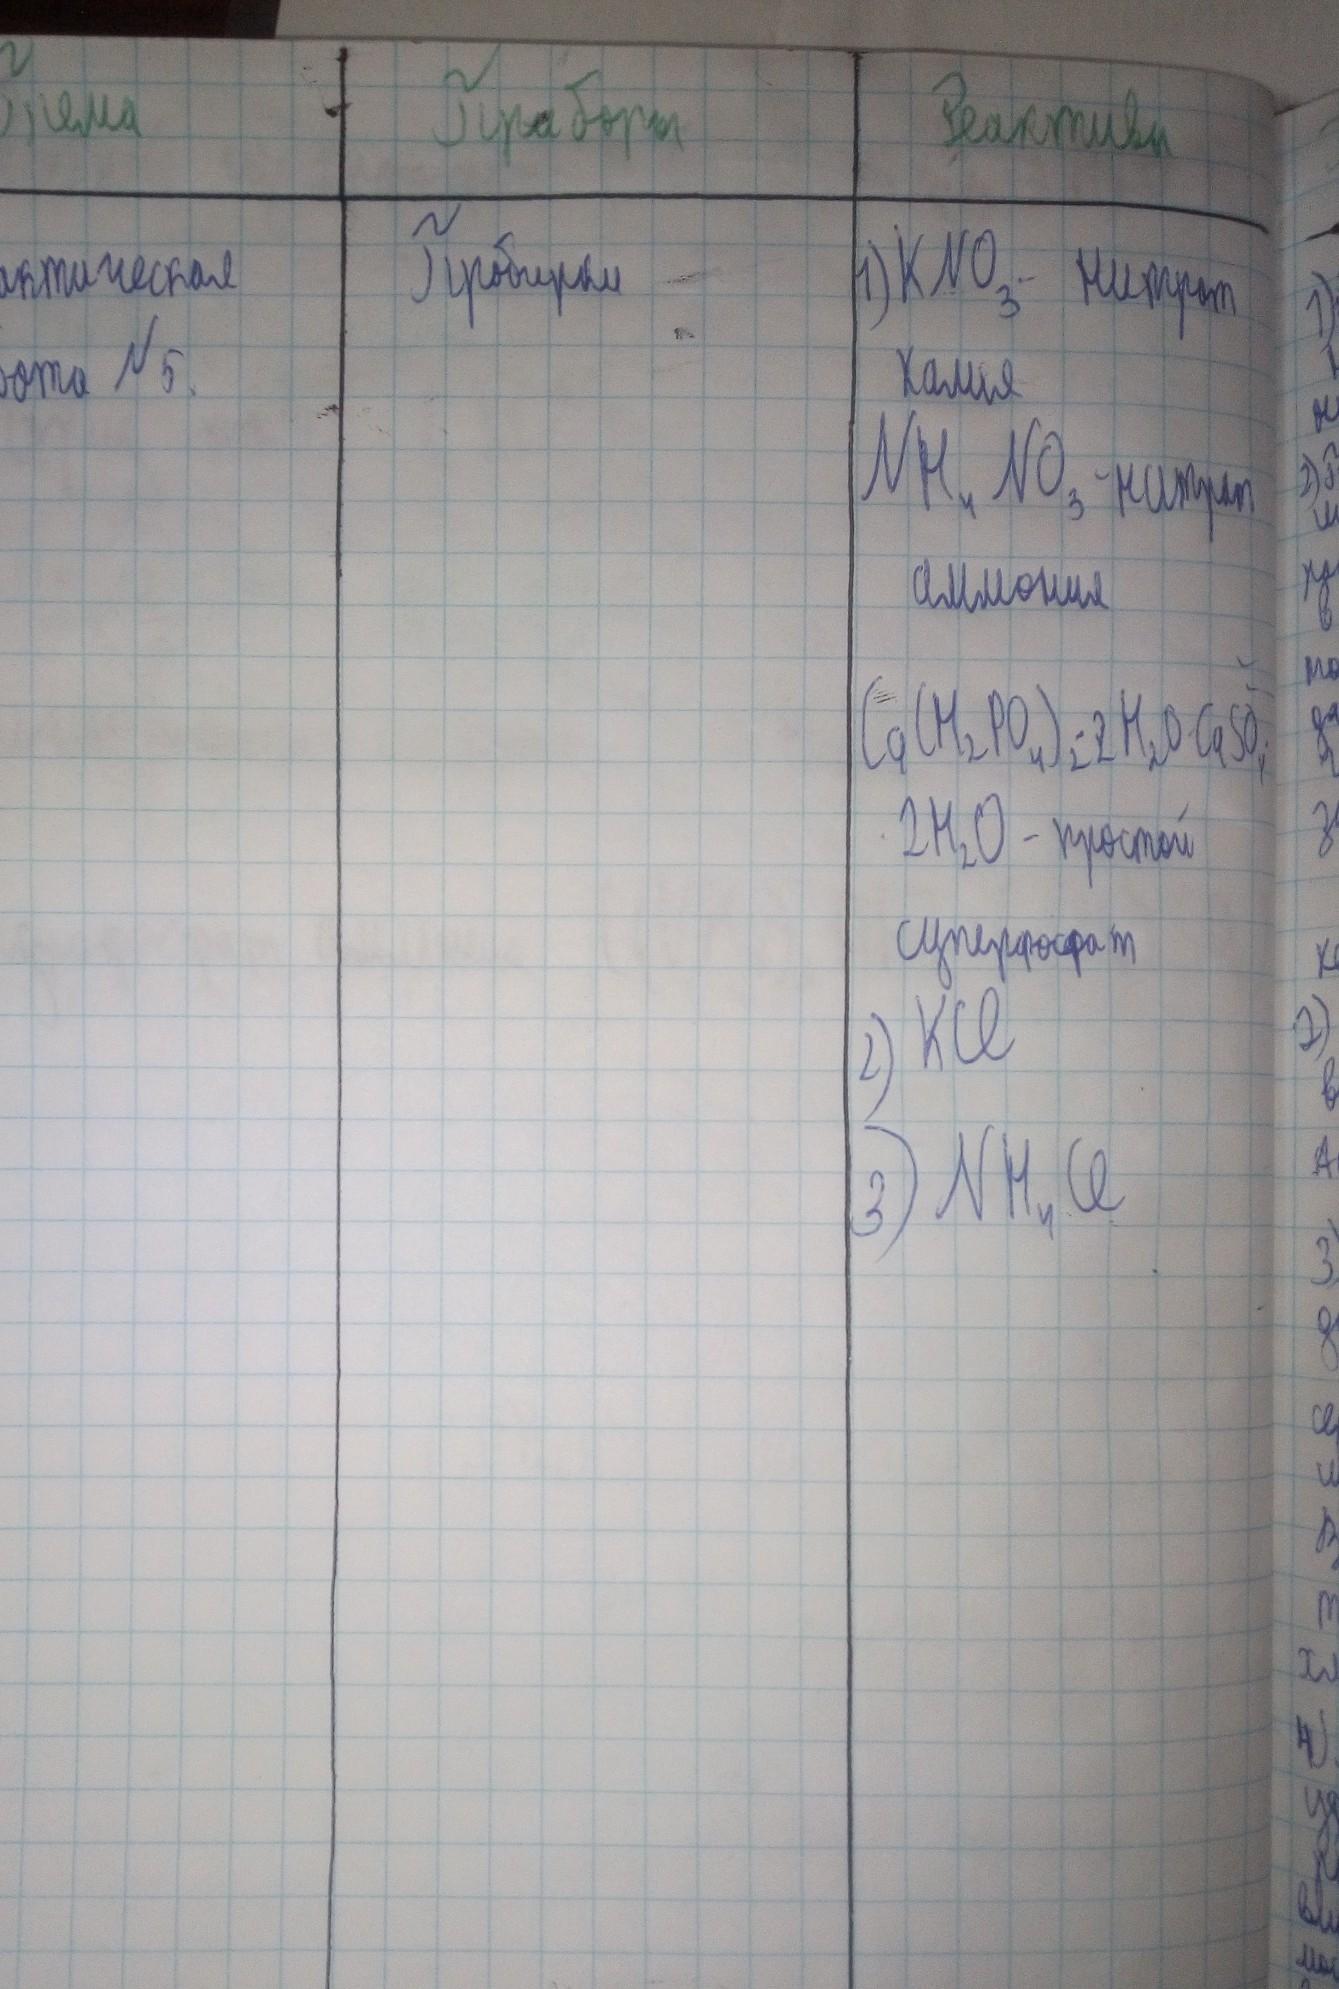 Тема Приборы Реактивы
актическая
бота №5.
Пробирки
1) KNO₃ - нитрат
калия
NH₄NO₃ - нитрат
аммония
Ca(H₂PO₄)₂·2H₂O·CaSO₄·
·2H₂O - простой
суперфосфат
2) KCl
3) NH₄Cl
1)
2)
3)